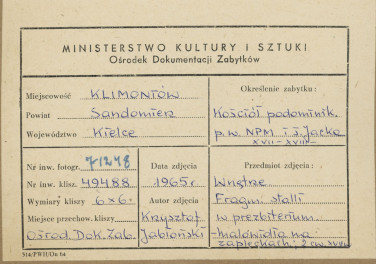 MINISTERSTWO KULTURY I SZTUKI
Ośrodek Dokumentacji Zabytków
Miejscowość KLIMONTÓW
Powiat Sandomierz
Województwo Kielce
Określenie zabytku:
Kościół podominik.
p.w. NPM i ś. Jacka
XVII-XVIII
Nr inw. fotogr. 71248
Nr inw. klisz. 49488
Wymiary klisz 6x6
Miejsce przechow. kliszy
Ośrod. Dok. Zab.
Data zdjęcia
1965 r.
Autor zdjęcia
Krzysztof
Jabłoński
Przedmiot zdjęcia:
Wnętrze
Fragm. stalli
w prezbiterium
malowidła na
zapleckach; XVIII